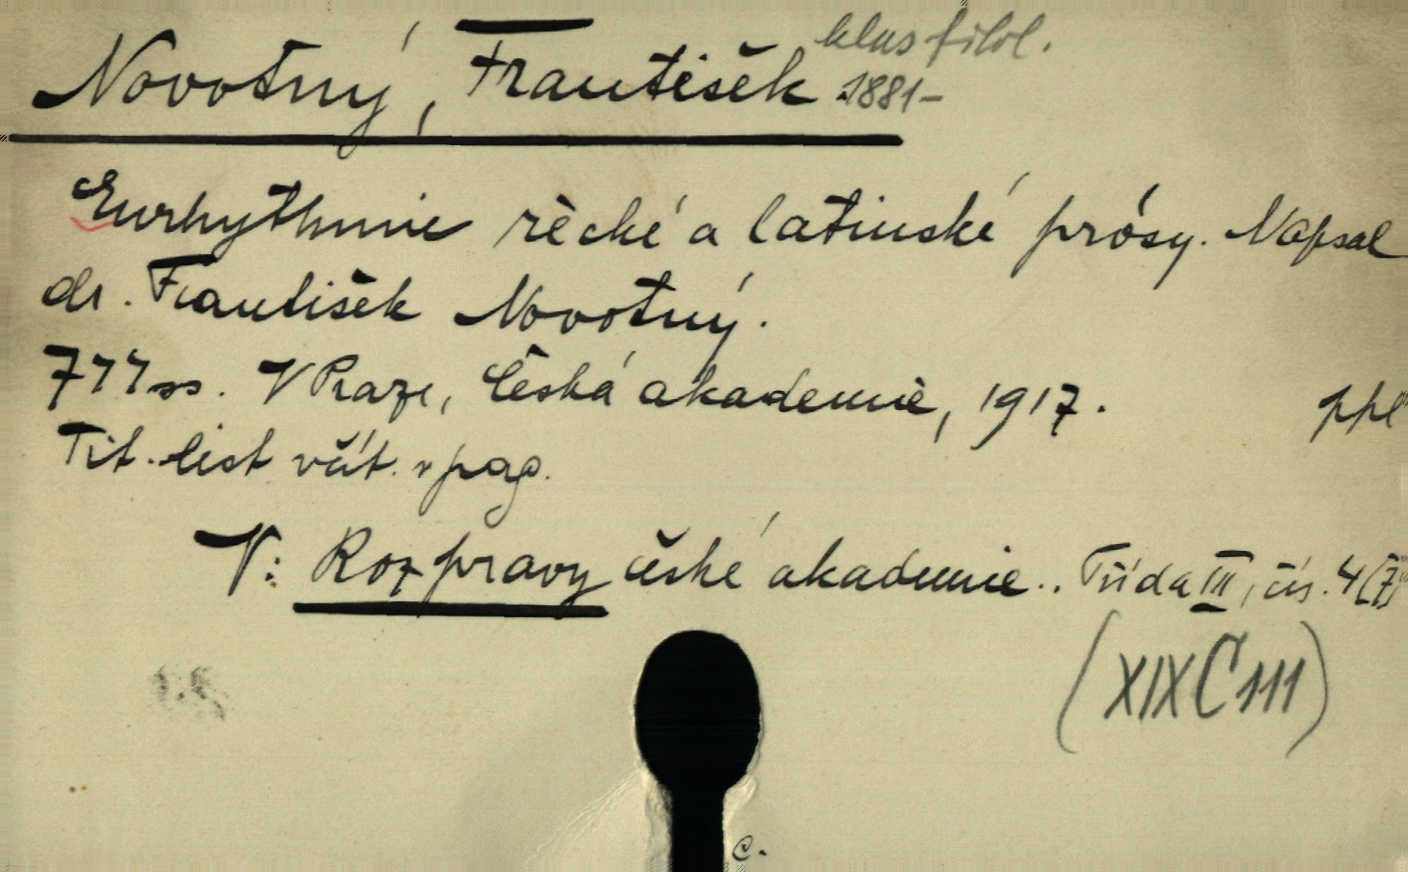 Novotný, František klas filol.
1881-
Eurhythmie řecké a latinské prósy. Napsal
dr. František Novotný.
ss. V Praze, Česká akademie, 1917. ppl
Tit. list v pag.
V: Rozpravy české akademie.. Třída III, čís. 4(7)
(XIX C 111)
c.